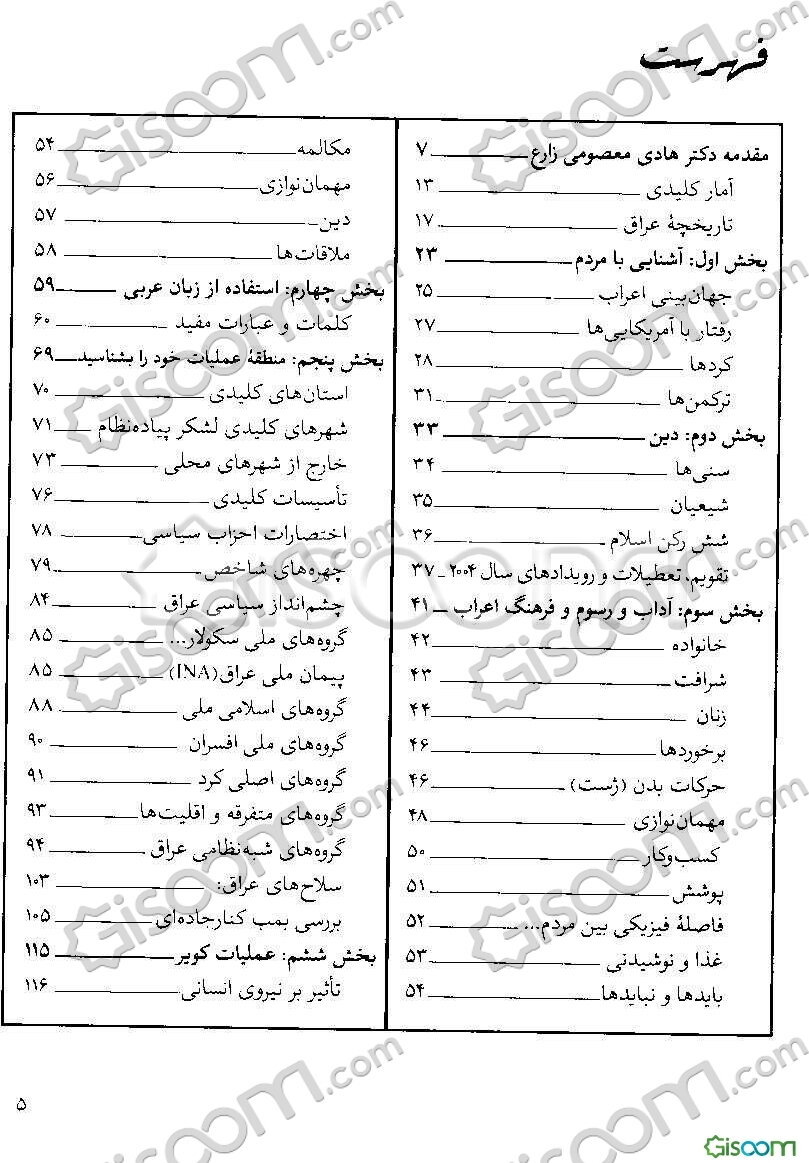 فهرست
مقدمه دکتر هادی معصومی زارع ۷
آمار کلیدی ۱۳
تاریخچهٔ عراق ۱۷
بخش اول: آشنایی با مردم ۲۳
جهان‌بینی اعراب ۲۵
رفتار با آمریکایی‌ها ۲۷
کردها ۲۸
ترکمن‌ها ۳۱
بخش دوم: دین ۳۳
سنی‌ها ۳۴
شیعیان ۳۵
شش رکن اسلام ۳۶
تقویم، تعطیلات و رویدادهای سال ۲۰۰۴ ۳۷
بخش سوم: آداب و رسوم و فرهنگ اعراب ۴۱
خانواده ۴۲
شرافت ۴۳
زنان ۴۴
برخوردها ۴۶
حرکات بدن (ژست) ۴۶
مهمان‌نوازی ۴۸
کسب‌وکار ۵۰
پوشش ۵۱
فاصلهٔ فیزیکی بین مردم... ۵۲
غذا و نوشیدنی ۵۳
بایدها و نبایدها ۵۴
مکالمه ۵۴
مهمان‌نوازی ۵۶
دین ۵۷
ملاقات‌ها ۵۸
بخش چهارم: استفاده از زبان عربی ۵۹
کلمات و عبارات مفید ۶۰
بخش پنجم: منطقهٔ عملیات خود را بشناسید ۶۹
استان‌های کلیدی ۷۰
شهرهای کلیدی لشکر پیاده‌نظام ۷۱
خارج از شهرهای محلی ۷۳
تأسیسات کلیدی ۷۶
اختصارات احزاب سیاسی ۷۸
چهره‌های شاخص ۷۹
چشم‌انداز سیاسی عراق ۸۴
گروه‌های ملی سکولار... ۸۵
پیمان ملی عراق(INA) ۸۵
گروه‌های اسلامی ملی ۸۸
گروه‌های ملی افسران ۹۰
گروه‌های اصلی کرد ۹۱
گروه‌های متفرقه و اقلیت‌ها ۹۳
گروه‌های شبه‌نظامی عراق ۹۴
سلاح‌های عراق: ۱۰۳
بررسی بمب کنارجاده‌ای ۱۰۵
بخش ششم: عملیات کویر ۱۱۵
تأثیر بر نیروی انسانی ۱۱۶
۵
Gisoom.com
Gisoom